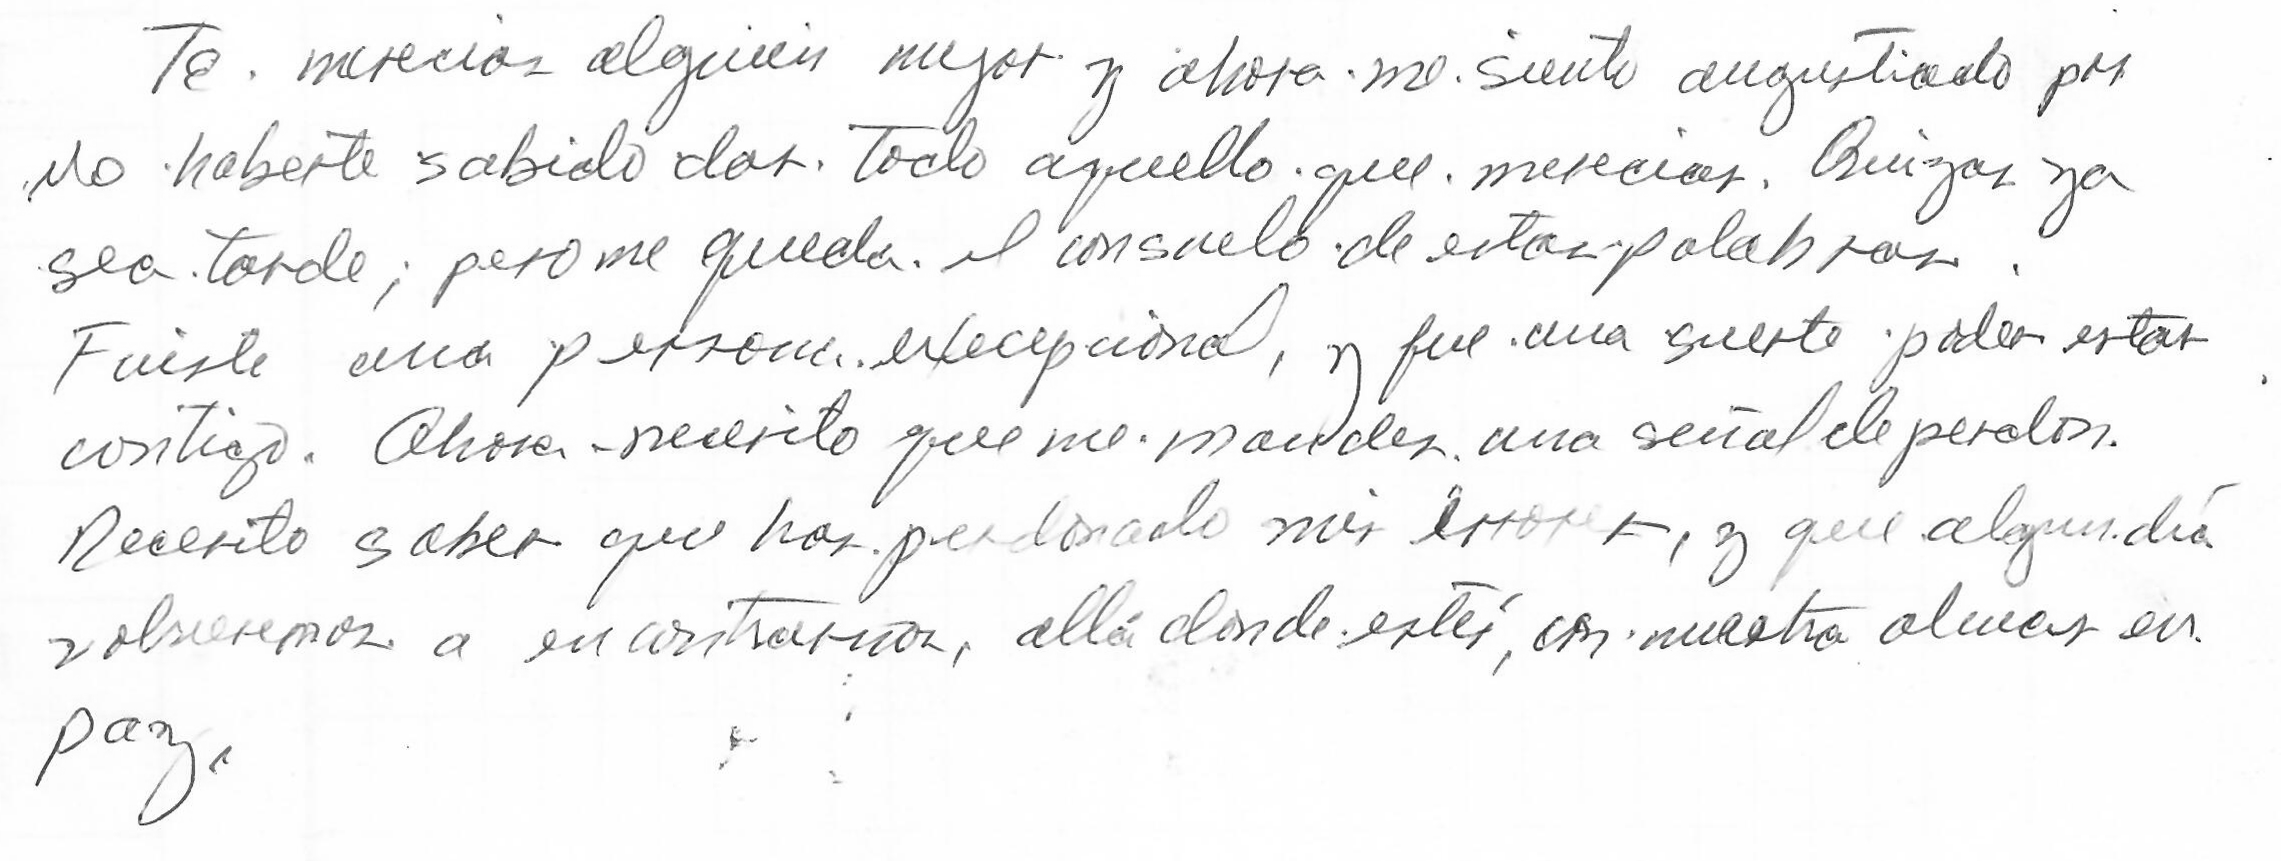 Te merecias alguien mejor y ahora me siento angustiado por
No haberte sabido dar todo aquello que merecias. Quizas ya
sea tarde; pero me queda el consuelo de estas palabras.
Fuiste una persona exécepcional, y fue una suerte poder estar
contigo. Ahora necesito que me mandes una señal de perdon.
Necesito saber que has perdonado mis errores, y que algun día
volveremos a encontrarnos, allá donde estés, con nuestra almas en
paz.